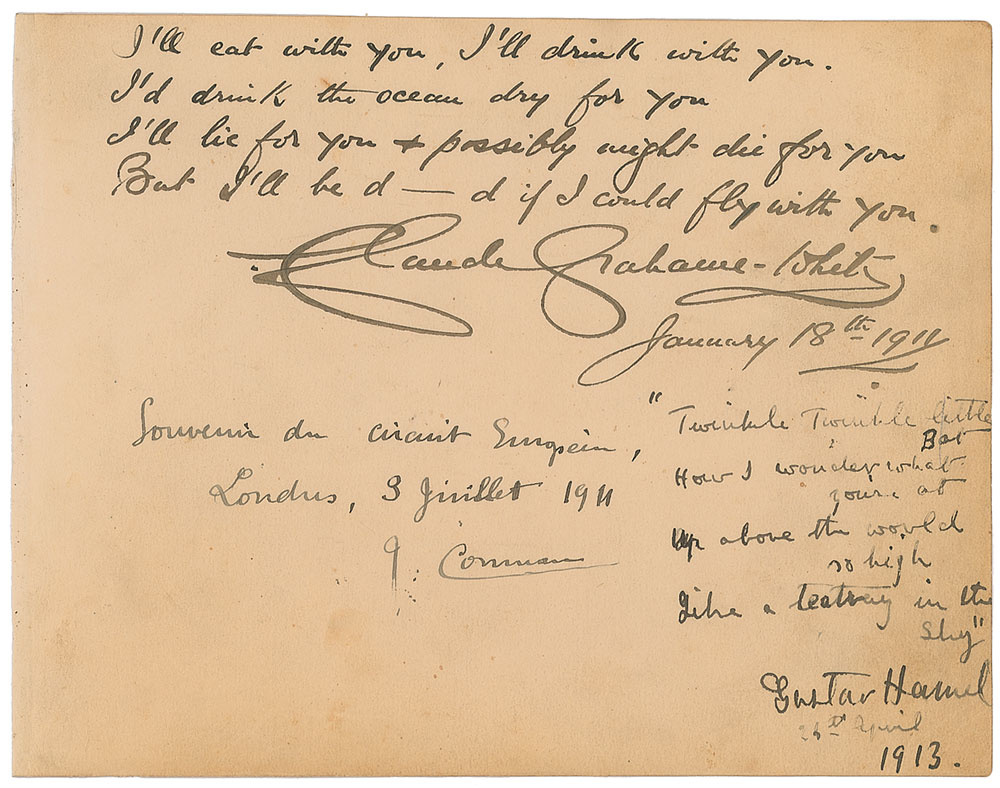 I'll eat with you, I'll drink with you.
I'd drink the ocean dry for you
I'll lie for you + possibly might die for you
But I'll be d — d if I could fly with you.
Claude Grahame-White
January 18th 1911
Souvenir du circuit Européen,
Londres, 3 Juillet 1911
J.
"Twinkle Twinkle little
Bat
How I wonder what
you're at
Up above the world
so high
Like a teatray in the
Sky"
Gustav Hamel
April
1913.